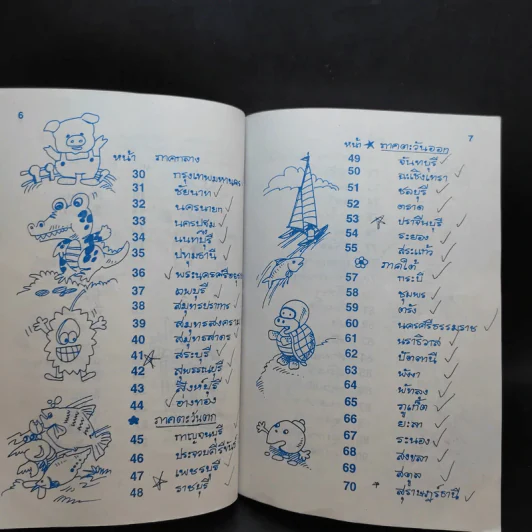 6
หน้า ภาคกลาง
30 กรุงเทพมหานคร
31 ชัยนาท
32 นครนายก
33 นครปฐม
34 นนทบุรี
35 ปทุมธานี
36 พระนครศรีอยุธยา
37 ลพบุรี
38 สมุทรปราการ
39 สมุทรสงคราม
40 สมุทรสาคร
41 สระบุรี
42 สุพรรณบุรี
43 สิงห์บุรี
44 อ่างทอง
ภาคตะวันตก
45 กาญจนบุรี
46 ประจวบคีรีขันธ์
47 เพชรบุรี
48 ราชบุรี
7
หน้า ภาคตะวันออก
49 จันทบุรี
50 ฉะเชิงเทรา
51 ชลบุรี
52 ตราด
53 ปราจีนบุรี
54 ระยอง
55 สระแก้ว
ภาคใต้
57 กระบี่
58 ชุมพร
59 ตรัง
60 นครศรีธรรมราช
61 นราธิวาส
62 ปัตตานี
63 พังงา
64 พัทลุง
65 ภูเก็ต
66 ยะลา
67 ระนอง
68 สงขลา
69 สตูล
70 สุราษฎร์ธานี